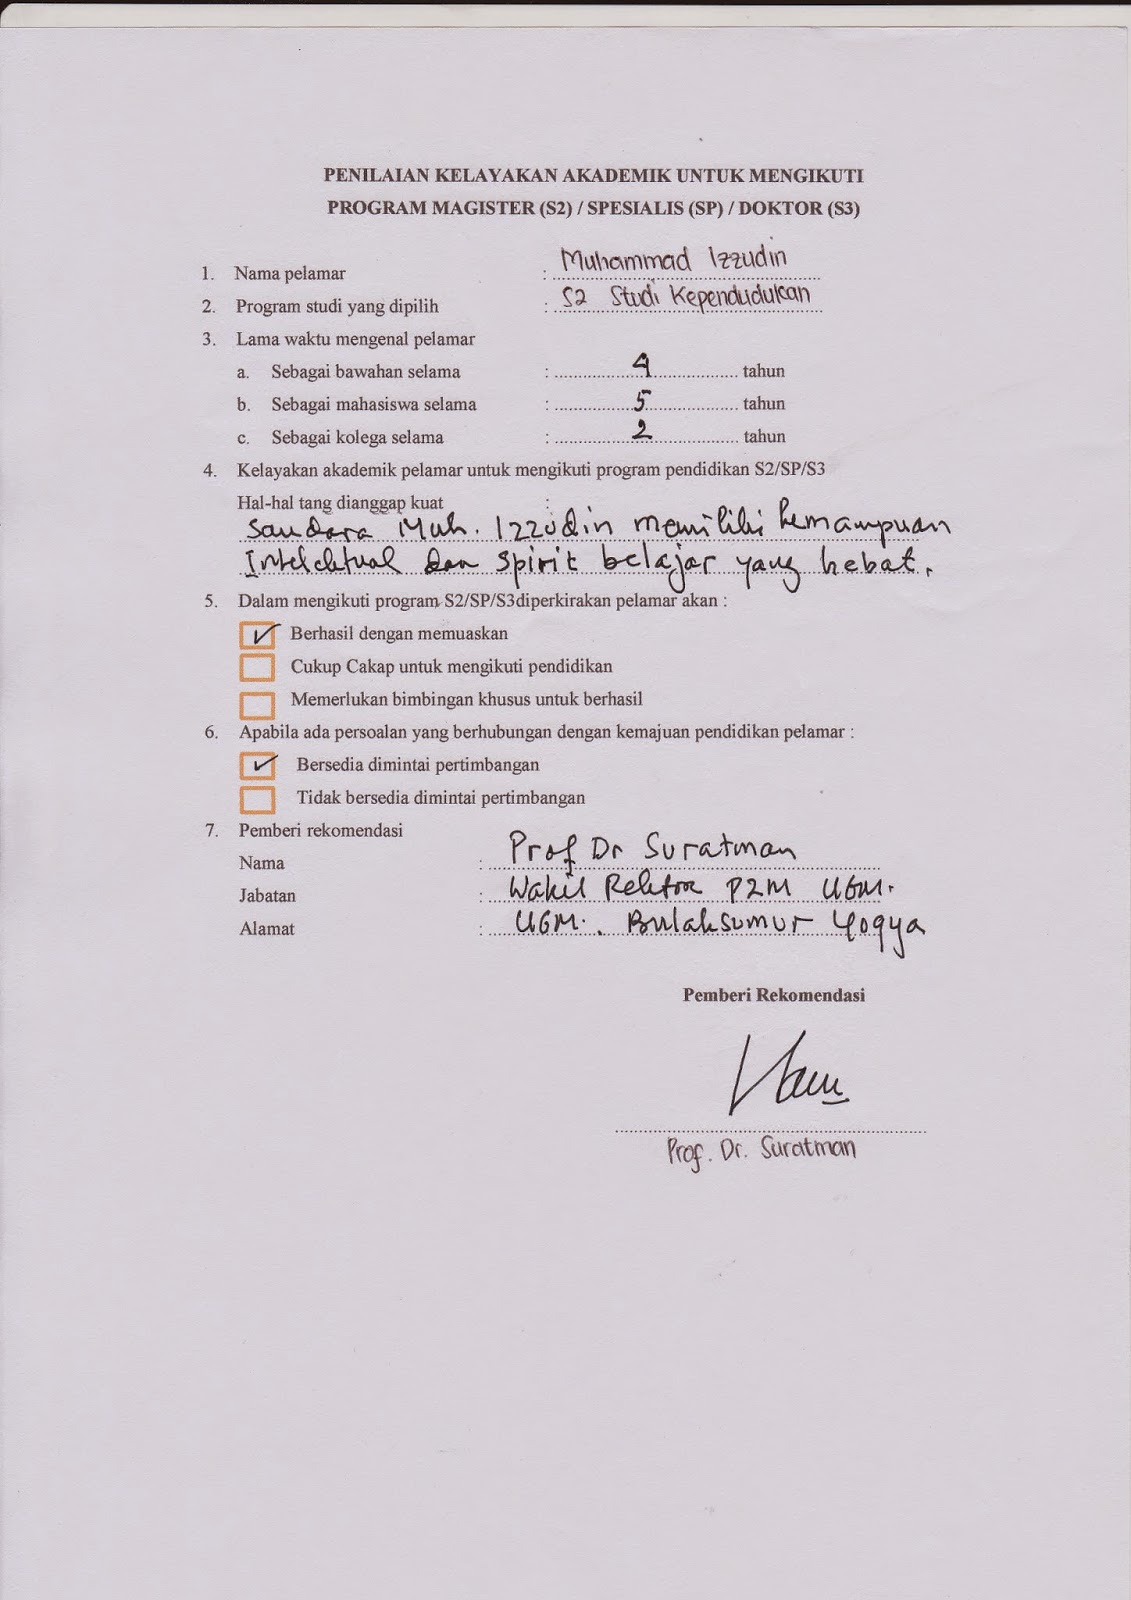 PENILAIAN KELAYAKAN AKADEMIK UNTUK MENGIKUTI
PROGRAM MAGISTER (S2) / SPESIALIS (SP) / DOKTOR (S3)
1. Nama pelamar : Muhammad Izzudin
2. Program studi yang dipilih : S2 Studi Kependudukan
3. Lama waktu mengenal pelamar
a. Sebagai bawahan selama : 4 tahun
b. Sebagai mahasiswa selama : 5 tahun
c. Sebagai kolega selama : 2 tahun
4. Kelayakan akademik pelamar untuk mengikuti program pendidikan S2/SP/S3
Hal-hal tang dianggap kuat :
Saudara Muh. Izzudin memiliki kemampuan
Intelektual dan spirit belajar yang hebat.
5. Dalam mengikuti program S2/SP/S3diperkirakan pelamar akan :
✓ Berhasil dengan memuaskan
Cukup Cakap untuk mengikuti pendidikan
Memerlukan bimbingan khusus untuk berhasil
6. Apabila ada persoalan yang berhubungan dengan kemajuan pendidikan pelamar :
✓ Bersedia dimintai pertimbangan
Tidak bersedia dimintai pertimbangan
7. Pemberi rekomendasi
Nama : Prof Dr Suratman
Jabatan : Wakil Rektor P2M UGM.
Alamat : UGM. Bulaksumur Yogya
Pemberi Rekomendasi
Prof. Dr. Suratman